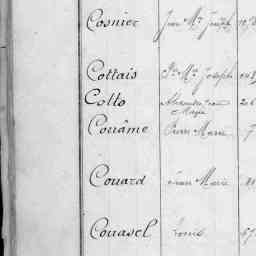 Cosnier Jean Mie Joseph
Cottais Pre Mie Joseph
Cotto Alexandre Jean
Marie
Couâme Pierre Marie 7
Couard Jean Marie
Couasel Louis